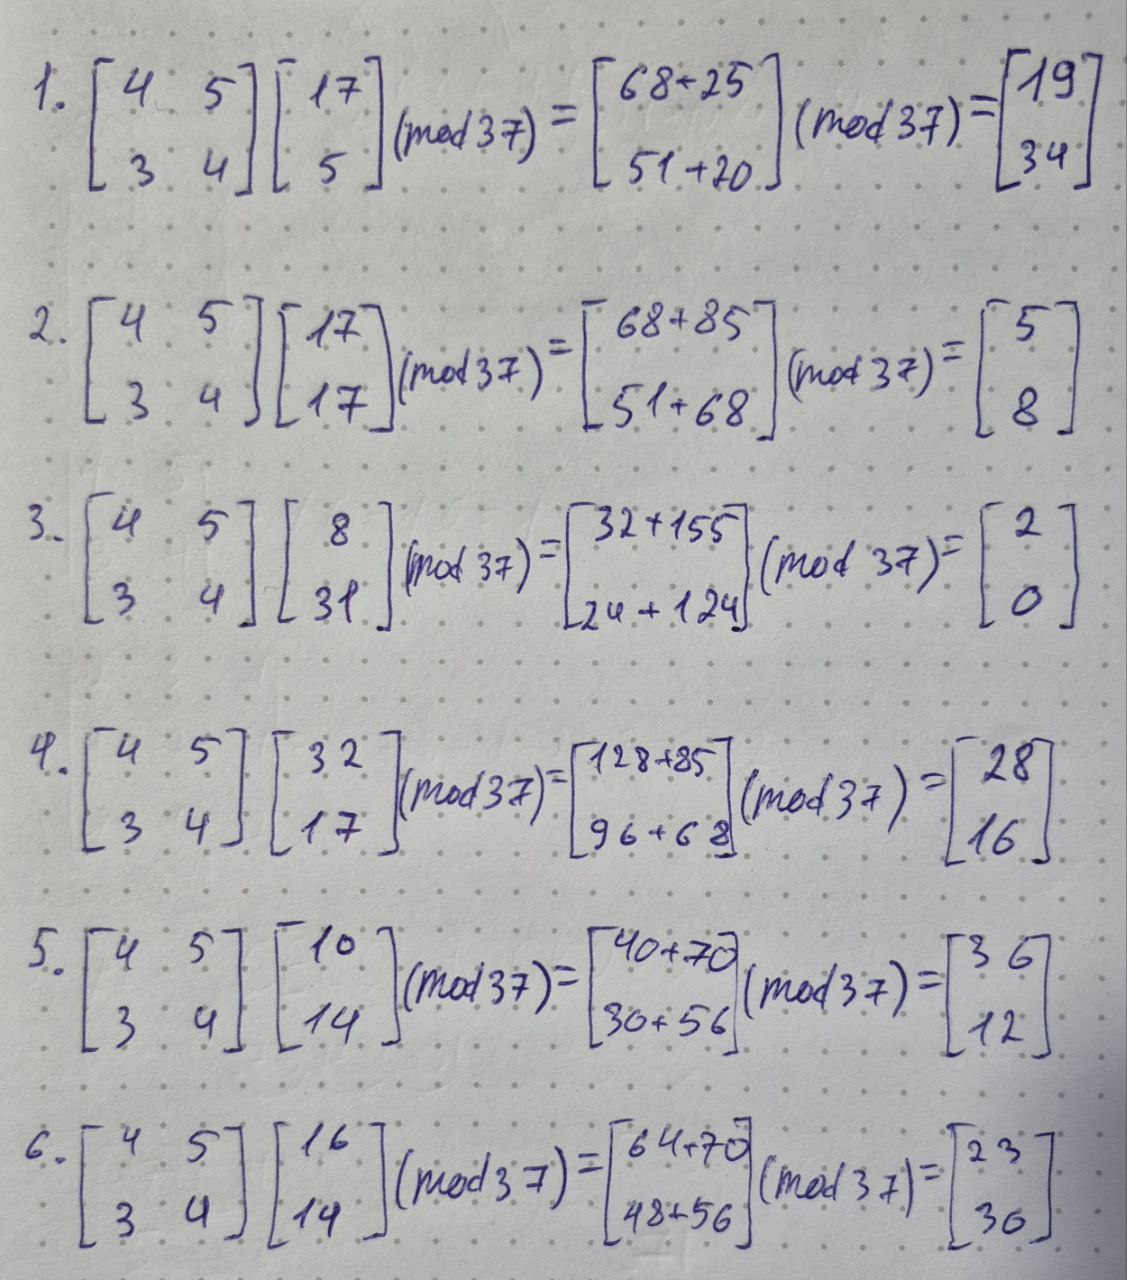 1. [4 5 3 4] [17 5] (mod 37) = [68+25 51+20] (mod 37) = [19 34]
2. [4 5 3 4] [17 17] (mod 37) = [68+85 51+68] (mod 37) = [5 8]
3. [4 5 3 4] [8 31] (mod 37) = [32+155 24+124] (mod 37) = [2 0]
4. [4 5 3 4] [32 17] (mod 37) = [128+85 96+68] (mod 37) = [28 16]
5. [4 5 3 4] [10 14] (mod 37) = [40+70 30+56] (mod 37) = [36 12]
6. [4 5 3 4] [16 14] (mod 37) = [64+70 48+56] (mod 37) = [23 30]